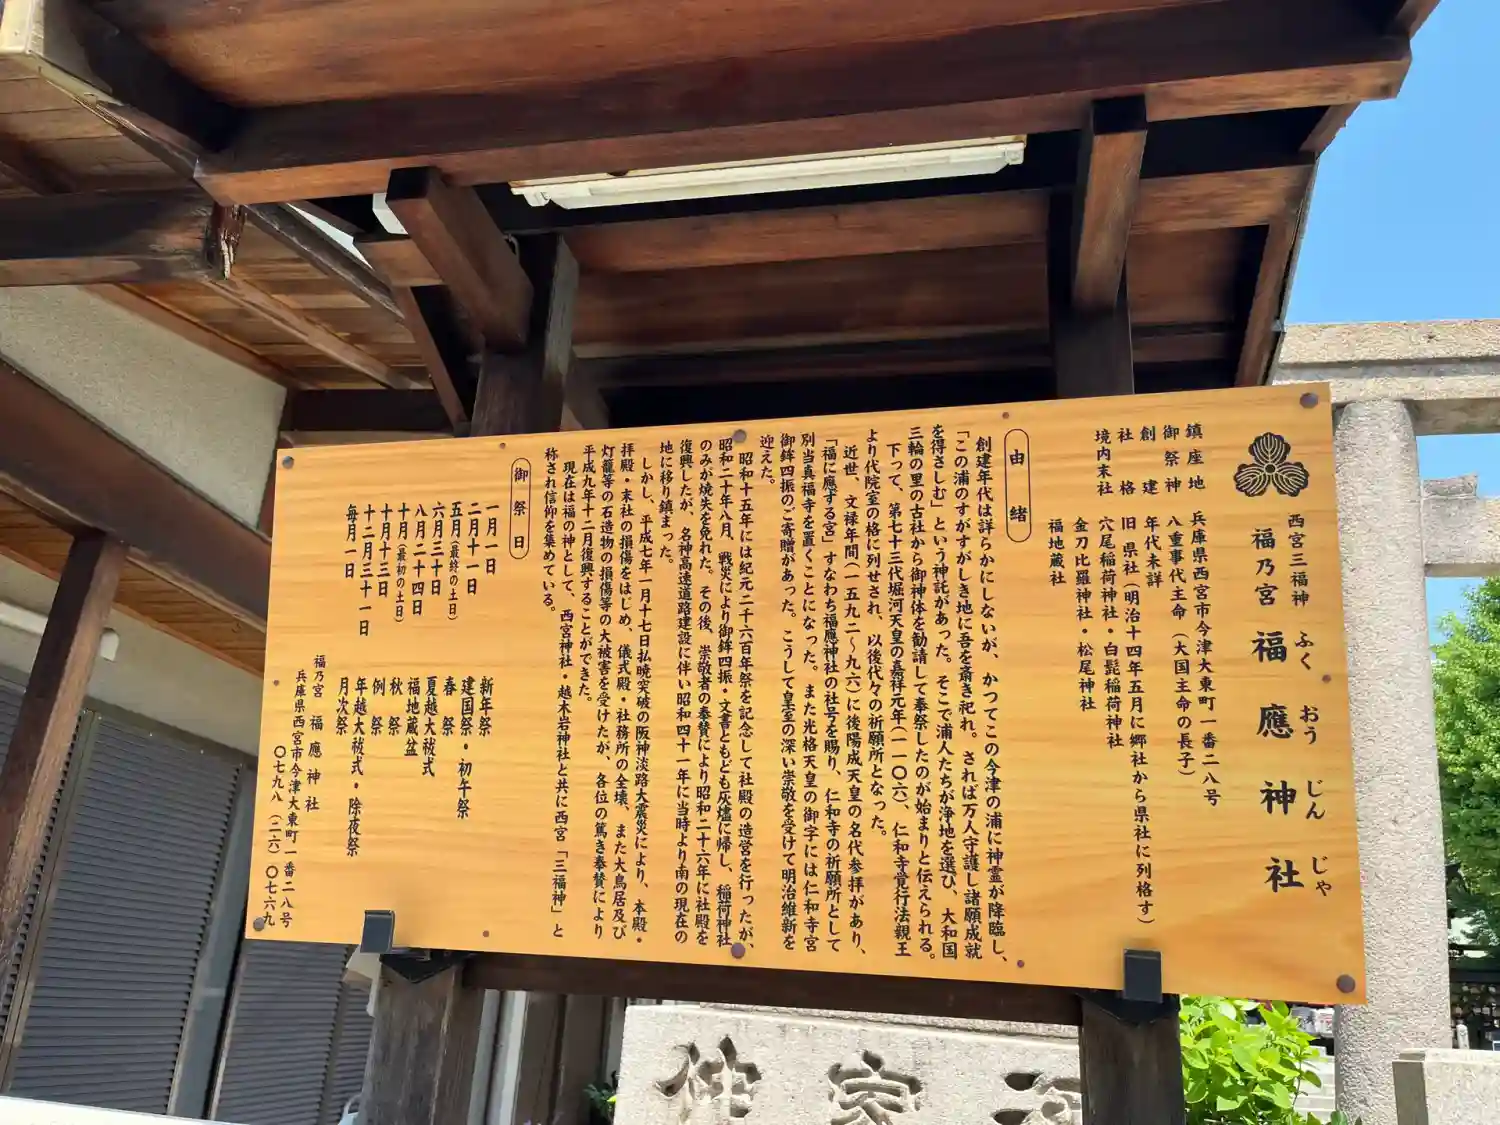 西宮三福神
福乃宮 福應神社
ふく おう じん じゃ
鎮座地 兵庫県西宮市今津大東町一番二八号
御祭神 八重事代主命(大国主命の長子)
創建 年代未詳
社格 旧県社(明治十四年五月に郷社から県社に列格す)
境内末社 穴尾稲荷神社・白髭稲荷神社
金刀比羅神社・松尾神社
福地蔵社
由緒
創建年代は詳らかにしないが、かつてこの今津の浦に神霊が降臨し、
「この浦のすがすがしき地に吾を斎き祀れ。されば万人守護し諸願成就
を得さしむ」という神託があった。そこで浦人たちが浄地を選び、大和国
三輪の里の古社から御神体を勧請して奉祭したのが始まりと伝えられる。
下って、第七十三代堀河天皇の嘉祥元年(一一〇六)、仁和寺覚行法親王
より代院室の格に列せされ、以後代々の祈願所となった。
近世、文禄年間(一五九二〜九六)に後陽成天皇の名代参拝があり、
「福に應ずる宮」すなわち福應神社の社号を賜り、仁和寺の祈願所として
別当真福寺を置くことになった。また光格天皇の御字には仁和寺宮
御鉾四振のご寄贈があった。こうして皇室の深い崇敬を受けて明治維新を
迎えた。
昭和十五年には紀元二千六百年祭を記念して社殿の造営を行ったが、
昭和二十年八月、戦災により御鉾四振・文書ともども灰燼に帰し、稲荷神社
のみが焼失を免れた。その後、崇敬者の奉賛により昭和二十六年に社殿を
復興したが、名神高速道路建設に伴い昭和四十一年に当時より南の現在の
地に移り鎮まった。
しかし、平成七年一月十七日払暁突破の阪神淡路大震災により、本殿・
拝殿・末社の損傷をはじめ、儀式殿・社務所の全壊、また大鳥居及び
灯籠等の石造物の損傷等の大被害を受けたが、各位の篤き奉賛により
平成九年十二月復興することができた。
現在は福の神として、西宮神社・越木岩神社と共に西宮「三福神」と
称され信仰を集めている。
御祭日
一月一日 新年祭
二月十一日 建国祭・初午祭
五月(最終の土日) 春祭
六月三十日 夏越大祓式
八月二十四日 福地蔵盆
十月(最初の土日) 秋祭
十月十三日 例祭
十二月三十一日 年越大祓式・除夜祭
毎月一日 月次祭
福乃宮 福應神社
兵庫県西宮市今津大東町一番二八号
〇七九八(二六)〇七六九